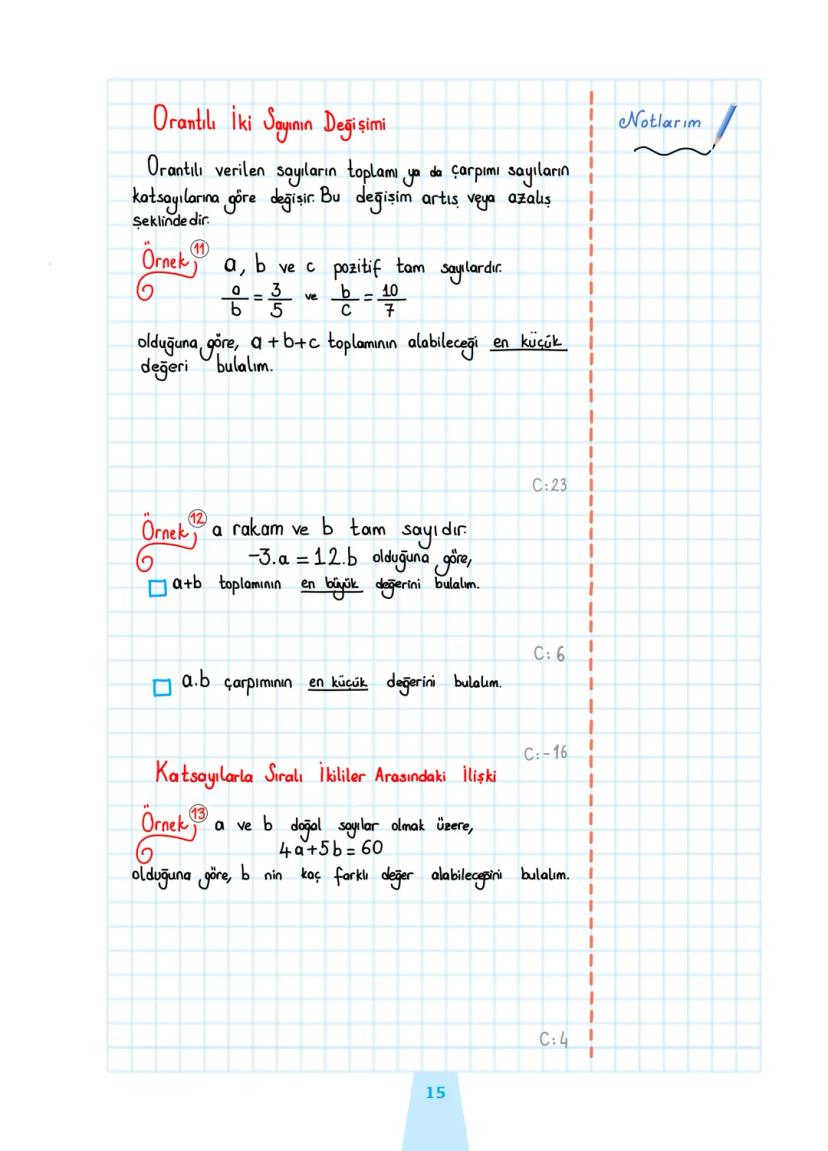 Orantılı İki Sayının Değişimi
Notlarım
Orantılı verilen sayıların toplamı ya da çarpımı sayıların
katsayılarına göre değişir. Bu değişim artış veya azalış
şeklindedir.
Örnek 11 a, b ve c pozitif tam sayılardır.
a/b = 3/5 ve b/c = 10/7
olduğuna göre, a+b+c toplamının alabileceği en küçük
değeri bulalım.
C:23
Örnek 12 a rakam ve b tam sayıdır.
-3.a = 12.b olduğuna göre,
a+b toplamının en büyük değerini bulalım.
C: 6
a.b çarpımının en küçük değerini bulalım.
C:-16
Katsayılarla Sıralı İkililer Arasındaki İlişki
Örnek 13 a ve b doğal sayılar olmak üzere,
4a+5b=60
olduğuna göre, b nin kaç farklı değer alabileceğini bulalım.
C:4
15